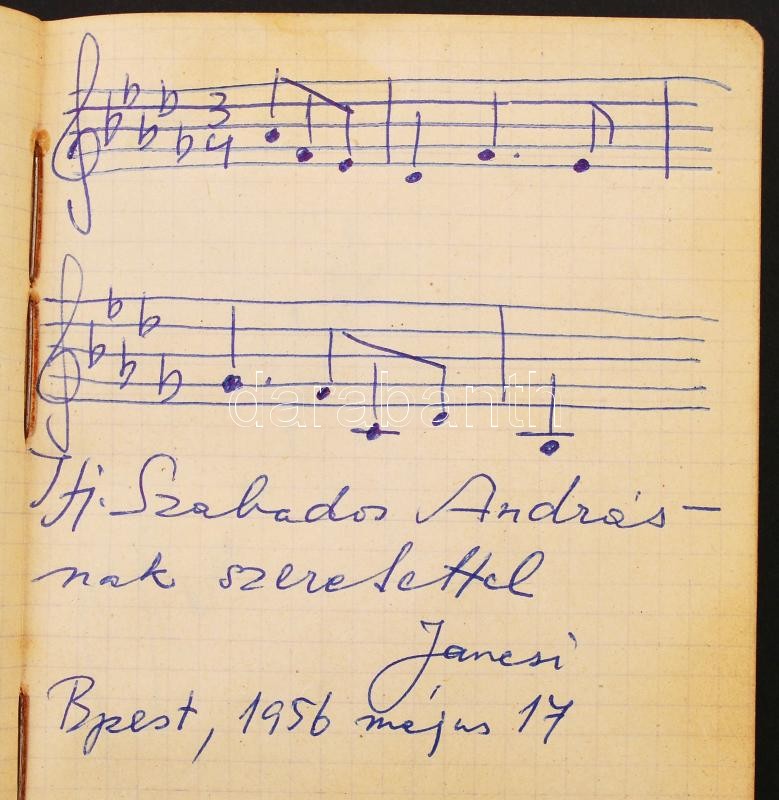 3
4
darabanth
Ifj. Szabados András-
nak szeretettel
Jancsi
Bpest, 1956 május 17